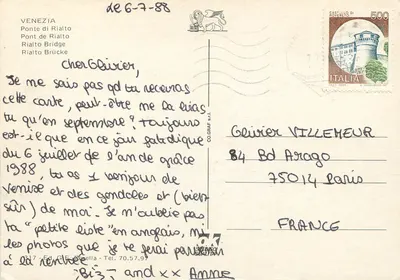 Le 6-7-88
VENEZIA
Ponte di Rialto
Pont de Rialto
Rialto Bridge
Rialto Brücke
500
ITALIA
Cher Olivier,
Je ne sais pas qd tu recevras
cette carte, peut-être ne la liras
tu qu'en septembre? Toujours
est-il que en ce jour fatidique
du 6 juillet de l'an de grâce
1988, tu as 1 bonjour de
Venise et des gondoles et (bien
sûr) de moi. Je n'oublie pas
ta "petite liste" en anglais, ni
les photos que je te ferai parvenir
à la rentrée.
Biz and xx Anne
Olivier VILLEMEUR
84 Bd Arago
75014 Paris
FRANCE